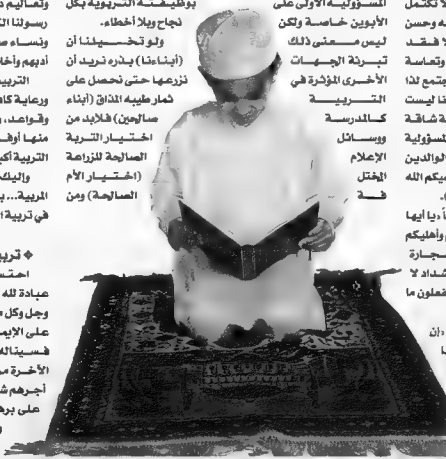 لا تكتمل
ه وحسن
لا فقد
وتعاسة
جتمع لذا
د ليست
ة شاقة
لمسؤولية
الوالدين
الله
يا أيها
وأهليكم
حجارة
شداد لا
فعلون ما
إن
المسؤولية الأولى على
الأبوين خاصة ولكن
ليس معنى ذلك
تبرئة الجهات
الأخرى المؤثرة في
التربية
كالمدرسة
ووسائل
الإعلام
المختل
فة
بوظيفته التربوية بكل
نجاح وبلا أخطاء.
ولو تخيلنا أن
(أبناءنا) بذره نريد أن
نزرعها حتى نحصل على
ثمار طيبه المذاق (أبناء
صالحين) فلابد من
اختيار التربة
الصالحة للزراعة
(اختيار الأم
الصالحة) ومن
وتعاليم د
رسولنا ال
ونساء ص
أدبهم وأخا
التربية
ورعاية كاف
وقواعد، و
منها أوف
التربية أكبر
وإليك
المربية... بـ
في تربية ا
❖ تربي
احتس
عبادة لله
وجل وكل م
على الإيم
فسيناله
الآخرة م
أجرهم ش
على بره
و